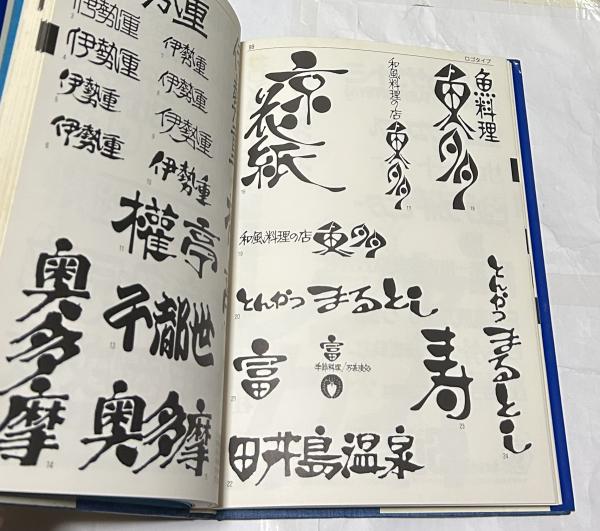 伊勢重
伊勢重
伊勢重
伊勢重
伊勢重
伊勢重
伊勢重
伊勢重
伊勢重
10
權亭
11
千都世
13
奥多摩
14
奥多摩
ロゴタイプ
京花紙
16
和風料理の店
東夛
17
魚料理
東夛
18
和風料理の店 東夛
19
とんかつ まるとし
20
富
21
富
寿
23
とんかつ まるとし
24
田井島温泉
22